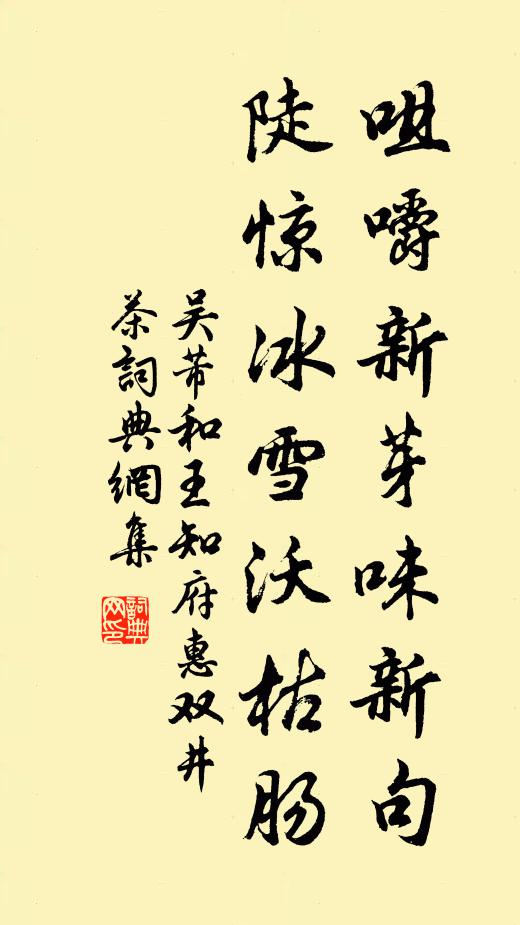 咀嚼新芽味新句
陡惊冰雪沃枯肠
吴芾和王知府惠双井
茶詞典網集
詞典网印